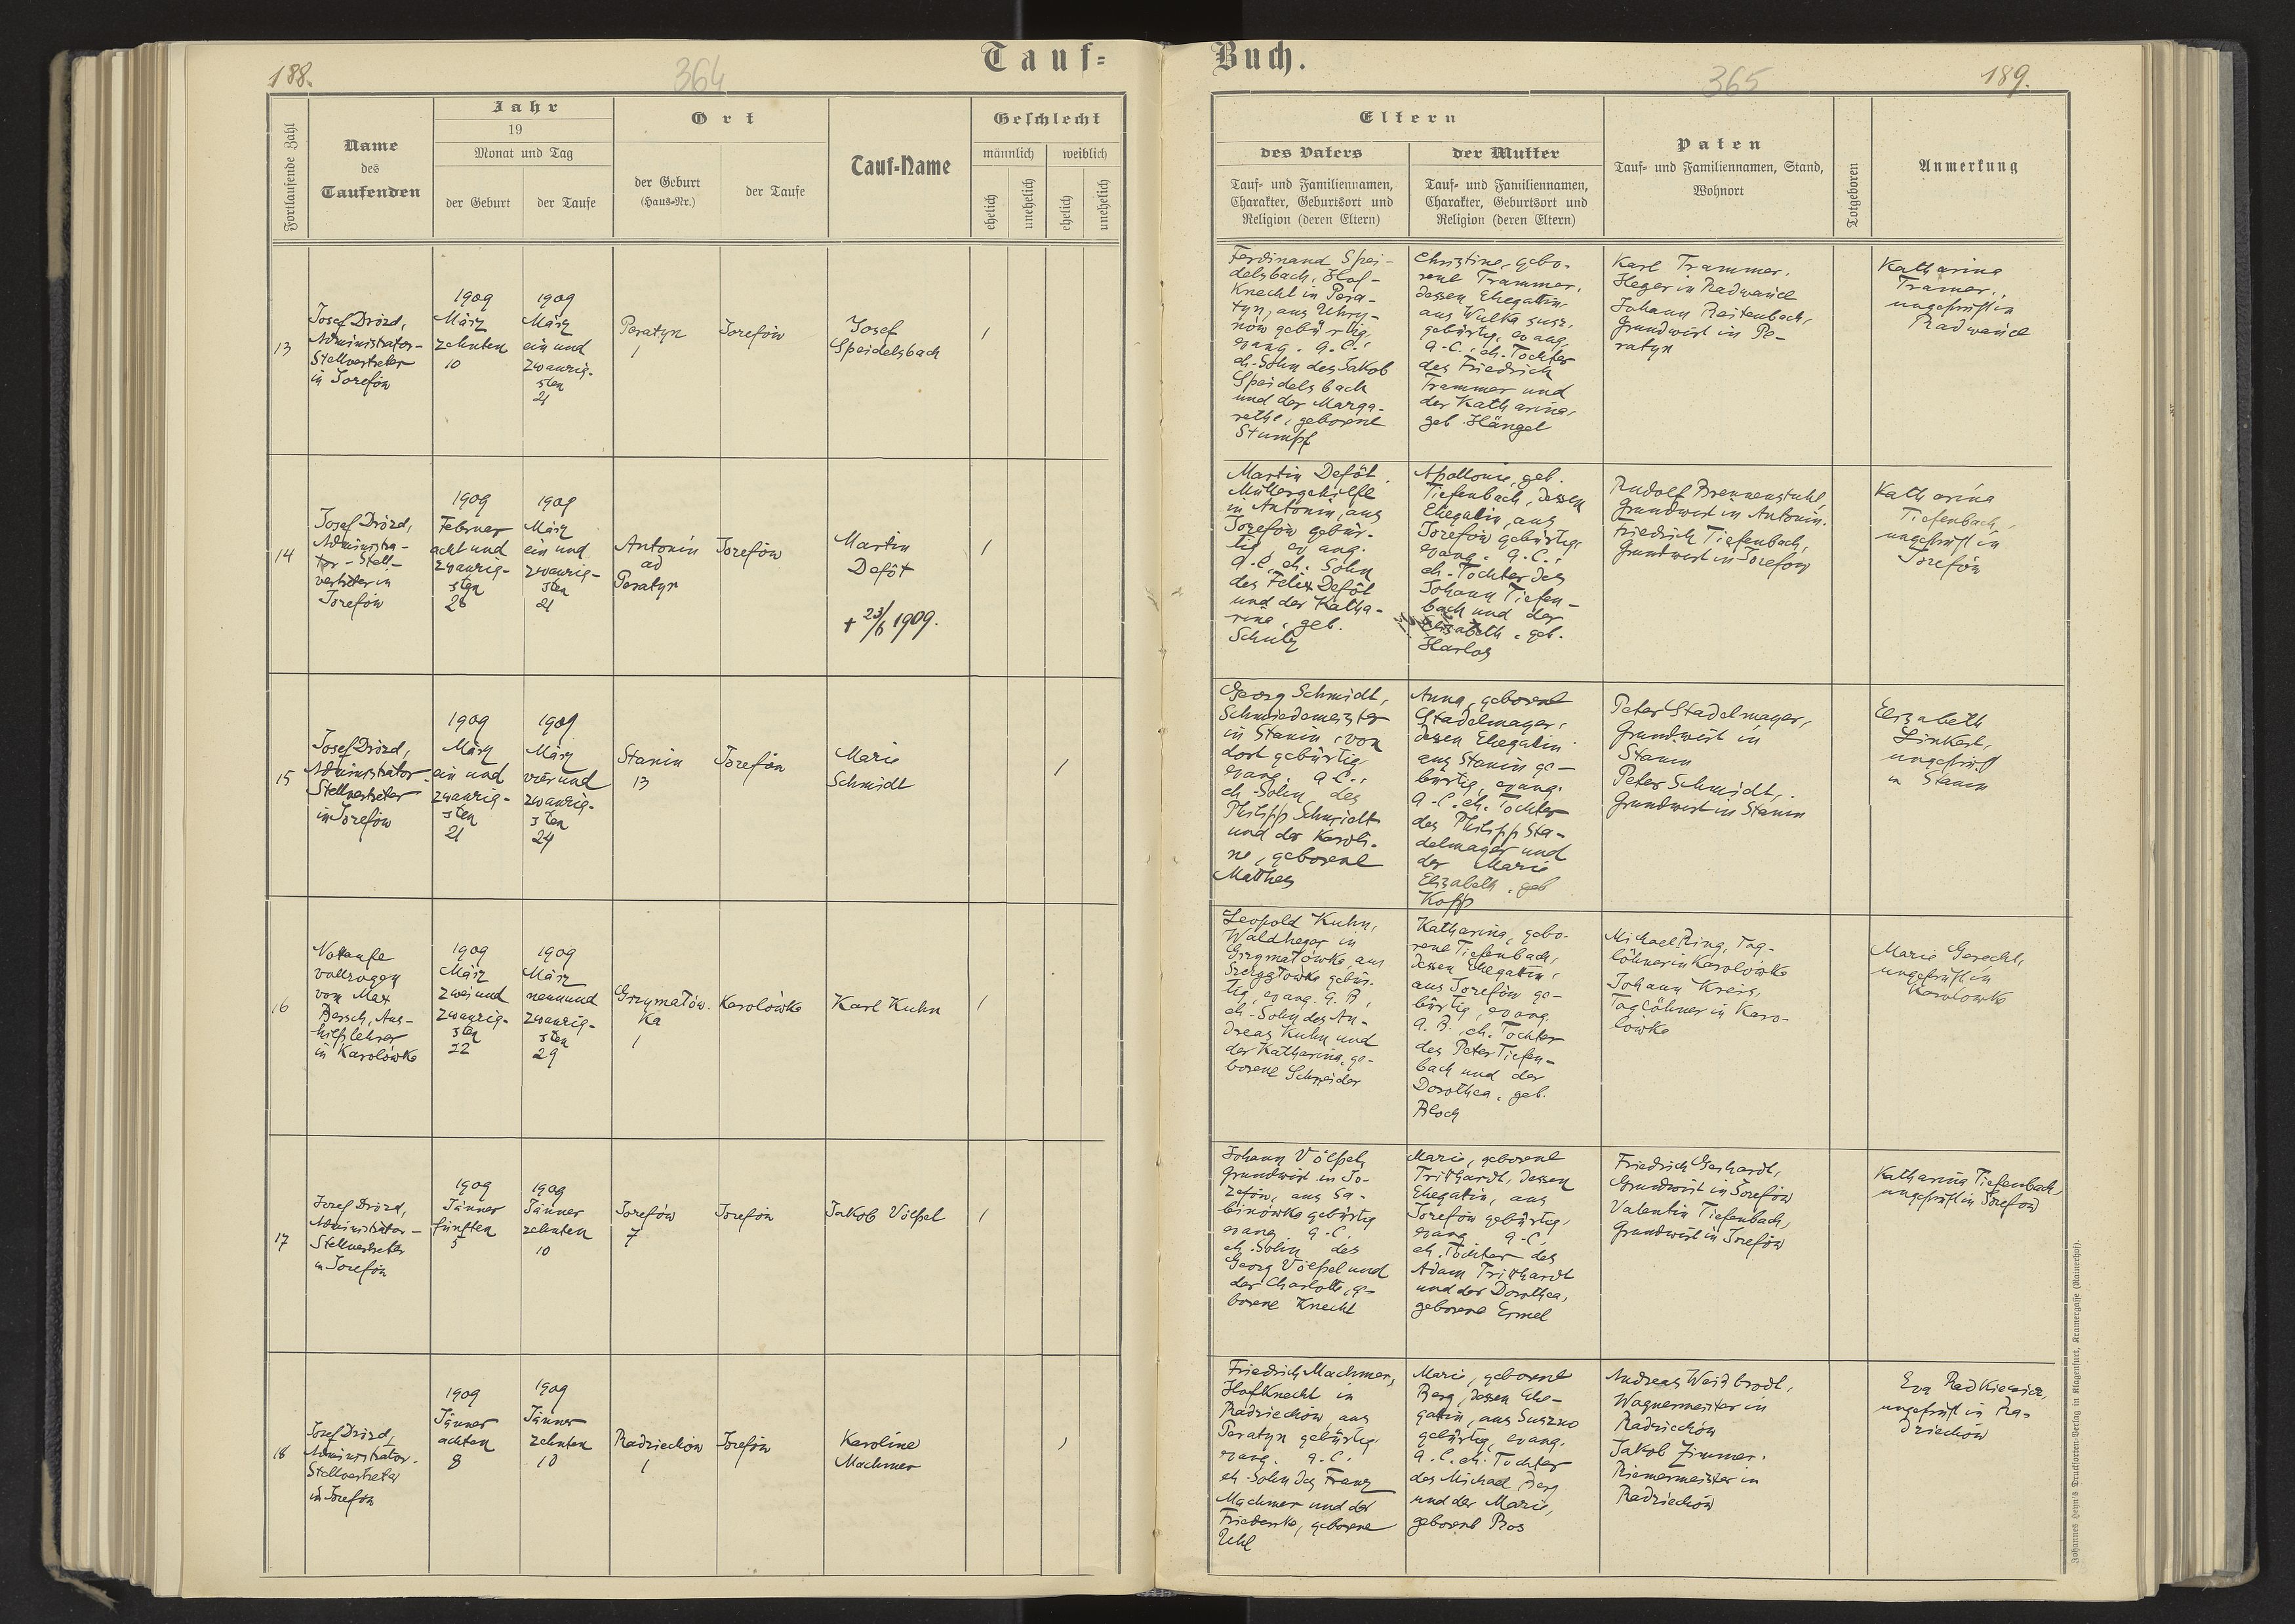 188.
364
Tauf-
Fortlaufende Zahl
Name
des
Taufenden
Jahr
19
Monat und Tag
der Geburt
der Taufe
Ort
der Geburt
(Haus-Nr.)
der Taufe
Tauf-Name
Geschlecht
männlich
weiblich
ehelich
unehelich
ehelich
unehelich
13
Josef Drózd,
Administrator-
Stellvertreter
in Josefów
1909
März
zehnten
10
1909
März
ein und
zwanzig-
sten
21
Peratyn
1
Josefów
Josef
Speidelsbach
1
14
Josef Drózd,
Administra-
tor-Stell-
vertreter in
Josefów
1909
Februar
acht und
zwanzig-
sten
28
1909
März
ein und
zwanzig-
sten
21
Antonin
ad
Peratyn
Josefów
Martin
Defôt
+ 23/6 1909.
1
15
Josef Drózd,
Administrator-
Stellvertreter
in Josefów
1909
März
ein und
zwanzig-
sten
21
1909
März
vier und
zwanzig-
sten
24
Stanin
13
Josefów
Marie
Schmidt
1
16
Nottaufe
vollzogen
von Max
Bersch, Aus-
hilfslehrer
in Karolówka
1909
März
zwei und
zwanzig-
sten
22
1909
März
neun und
zwanzig-
sten
29
Grzymałów-
ka
1
Karolówka
Karl Kuhn
1
17
Josef Drózd,
Administrator-
Stellvertreter
in Josefów
1909
Jänner
fünften
5
1909
Jänner
zehnten
10
Josefów
7
Josefów
Jakob Völpel
1
18
Josef Drózd,
Administrator-
Stellvertreter
in Josefów
1909
Jänner
achten
8
1909
Jänner
zehnten
10
Radziechów
1
Josefów
Karoline
Machmer
1
Buch.
365
189.
Eltern
des Vaters
Tauf- und Familiennamen,
Charakter, Geburtsort und
Religion (deren Eltern)
der Mutter
Tauf- und Familiennamen,
Charakter, Geburtsort und
Religion (deren Eltern)
Paten
Tauf- und Familiennamen, Stand,
Wohnort
Totgeboren
Anmerkung
Ferdinand Spei-
delsbach, Hof-
knecht in Pera-
tyn, aus Uhry-
nów gebürtig,
evang. A.C.,
eh. Sohn des Jakob
Speidelsbach
und der Marga-
rethe, geborene
Stumpf
Christine, gebo-
rene Trammer,
dessen Ehegattin,
aus Wulka susz.
gebürtig, evang.
A.C., eh. Tochter
des Friedrich
Trammer und
der Katharina,
geb. Hängel
Karl Trammer,
Heger in Radwanice
Johann Reitenbach,
Grundwirt in Pe-
ratyn
Katharina
Tramer,
ungeprüft in
Radwanice
Martin Defôt,
Müllergehilfe
in Antonin, aus
Josefów gebür-
tig, evang.
A.C., eh. Sohn
des Felix Defôt
und der Katha-
rina, geb.
Schulz
Apollonie, geb.
Tiefenbach, dessen
Ehegattin, aus
Josefów gebürtig,
evang. A.C.,
eh. Tochter des
Johann Tiefen-
bach und der
Elisabeth, geb.
Harlos
Rudolf Brennenstuhl,
Grundwirt in Antonin.
Friedrich Tiefenbach,
Grundwirt in Josefów
Katharina
Tiefenbach,
ungeprüft in
Josefów
Georg Schmidt,
Schmiedemeister
in Stanin, von
dort gebürtig,
evang. A.C.,
eh. Sohn des
Philipp Schmidt
und der Karoli-
ne, geborene
Matthes
Anna, geborene
Stadelmayer,
dessen Ehegattin
aus Stanin ge-
bürtig, evang.
A.C. eh. Tochter
des Philipp Sta-
delmayer und
der Marie
Elisabeth, geb
Kopp
Peter Stadelmayer,
Grundwirt in
Stanin
Peter Schmidt,
Grundwirt in Stanin
Elisabeth
Linkert,
ungeprüft
in Stanin
Leopold Kuhn,
Waldheger in
Grzymałówka, aus
gebür-
tig, evang. A.B.,
eh. Sohn des An-
dreas Kuhn und
der Katharina, ge-
borene Schneider
Katharina, gebo-
rene Tiefenbach,
dessen Ehegattin,
aus Josefów ge-
bürtig, evang.
A.B., eh. Tochter
des Peter Tiefen-
bach und der
Dorothea, geb.
Bloch
Michael Ring, Tag-
löhner in Karolówka
Johann Kreis,
Taglöhner in Karo-
lówka
Marie Gerecht,
ungeprüft in
Karolówka
Johann Völpel,
Grundwirt in Jo-
zefów, aus Sa-
binówka gebürtig
evang. A.C.
eh. Sohn des
Georg Völpel und
der Charlotte, ge-
borene Knecht
Marie, geborene
Tritthardt, dessen
Ehegattin, aus
Josefów gebürtig,
evang. A.C.,
eh. Tochter des
Adam Tritthardt
und der Dorothea,
geborene Ermel
Friedrich Gerhardt,
Grundwirt in Josefów
Valentin Tiefenbach,
Grundwirt in Josefów
Katharina Tiefenbach,
ungeprüft in Josefów
Friedrich Machmer,
Hofknecht in
Radziechów, aus
Peratyn gebürtig,
evang. A.C.
eh. Sohn des Franz
Machmer und der
Friederike, geborene
Uhl
Marie, geborene
Berg, dessen Ehe-
gattin, aus Suszno
gebürtig, evang.
A.C. eh. Tochter
des Michael Berg
und der Marie,
geborene Ros
Andreas Weißbrodt,
Wagnermeister in
Radziechów
Jakob Zimmer,
Riemermeister in
Radziechów
Eva Radkiewicz,
ungeprüft in Ra-
dziechów
Johannes Heyn's Drucksorten-Verlag in Klagenfurt, Kramergasse (Rainerhof).